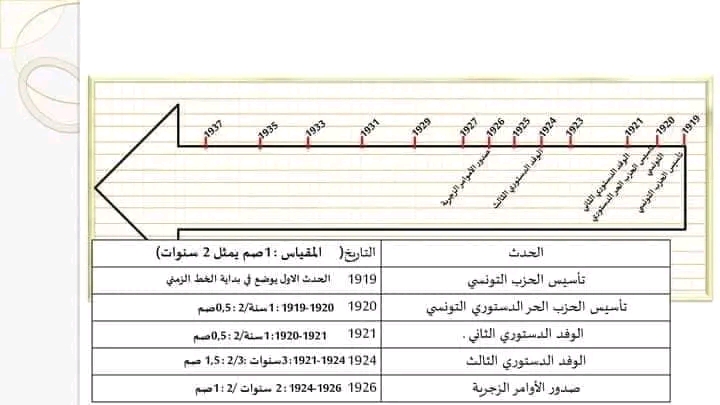 1919 1920 1921 1923 1924 1925 1926 1927 1929 1931 1933 1935 1937
تأسيس الحزب التونسي
تأسيس الحزب الحر الدستوري التونسي
الوفد الدستوري الثاني
الوفد الدستوري الثالث
صدور الأوامر الزجرية
الحدث	التاريخ( المقياس :1صم يمثل 2 سنوات)
تأسيس الحزب التونسي	1919 الحدث الاول يوضع في بداية الخط الزمني
تأسيس الحزب الحر الدستوري التونسي	1920 1919-1920 :1 سنة/2 :0,5صم
الوفد الدستوري الثاني .	1921 1920-1921 :1سنة/2 :0,5صم
الوفد الدستوري الثالث	1924 1921-1924 :3سنوات :2/3 :1,5 صم
صدور الأوامر الزجرية	1926 1924-1926 :2 سنوات /2 :1صم